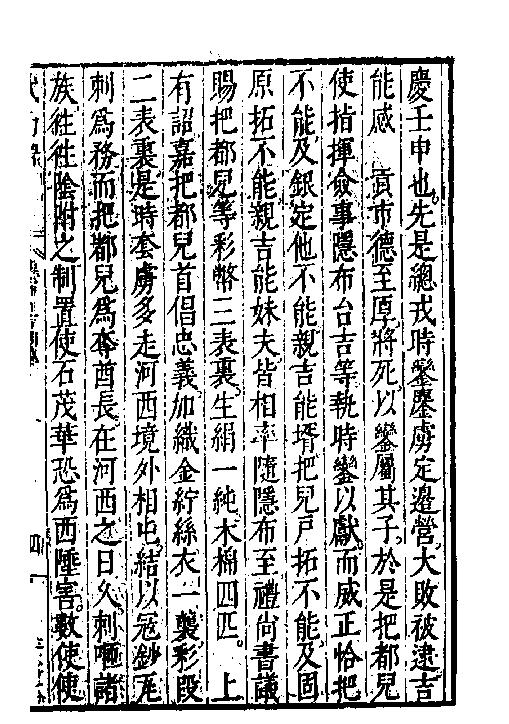 慶壬申也先是總戎時鑾鏖虜定邊營大敗被逮吉
能感　貢市德至厚將死以鑾屬其子於是把都兒
使指揮僉事隱布台吉等執時鑾以獻而威正恰把
不能及銀定他不能親吉能壻把兒戸拓不能及固
原拓不能親吉能妹夫皆相率隨隱布至禮尚書議
賜把都兒等彩幣三表裏生絹一純木棉四匹　上
有詔嘉把都兒首倡忠義加織金紵絲衣一襲彩段
二表裏是時套虜多走河西境外相屯結以寇鈔瓦
刺爲務而把都兒爲套酋長在河西之日久刺哑諸
族徃徃陰附之制置使石茂華恐爲西陲害數使使
四